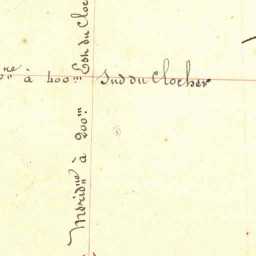 ne à 400m Sud du Clocher
Meridne à 200m Est du Cloc